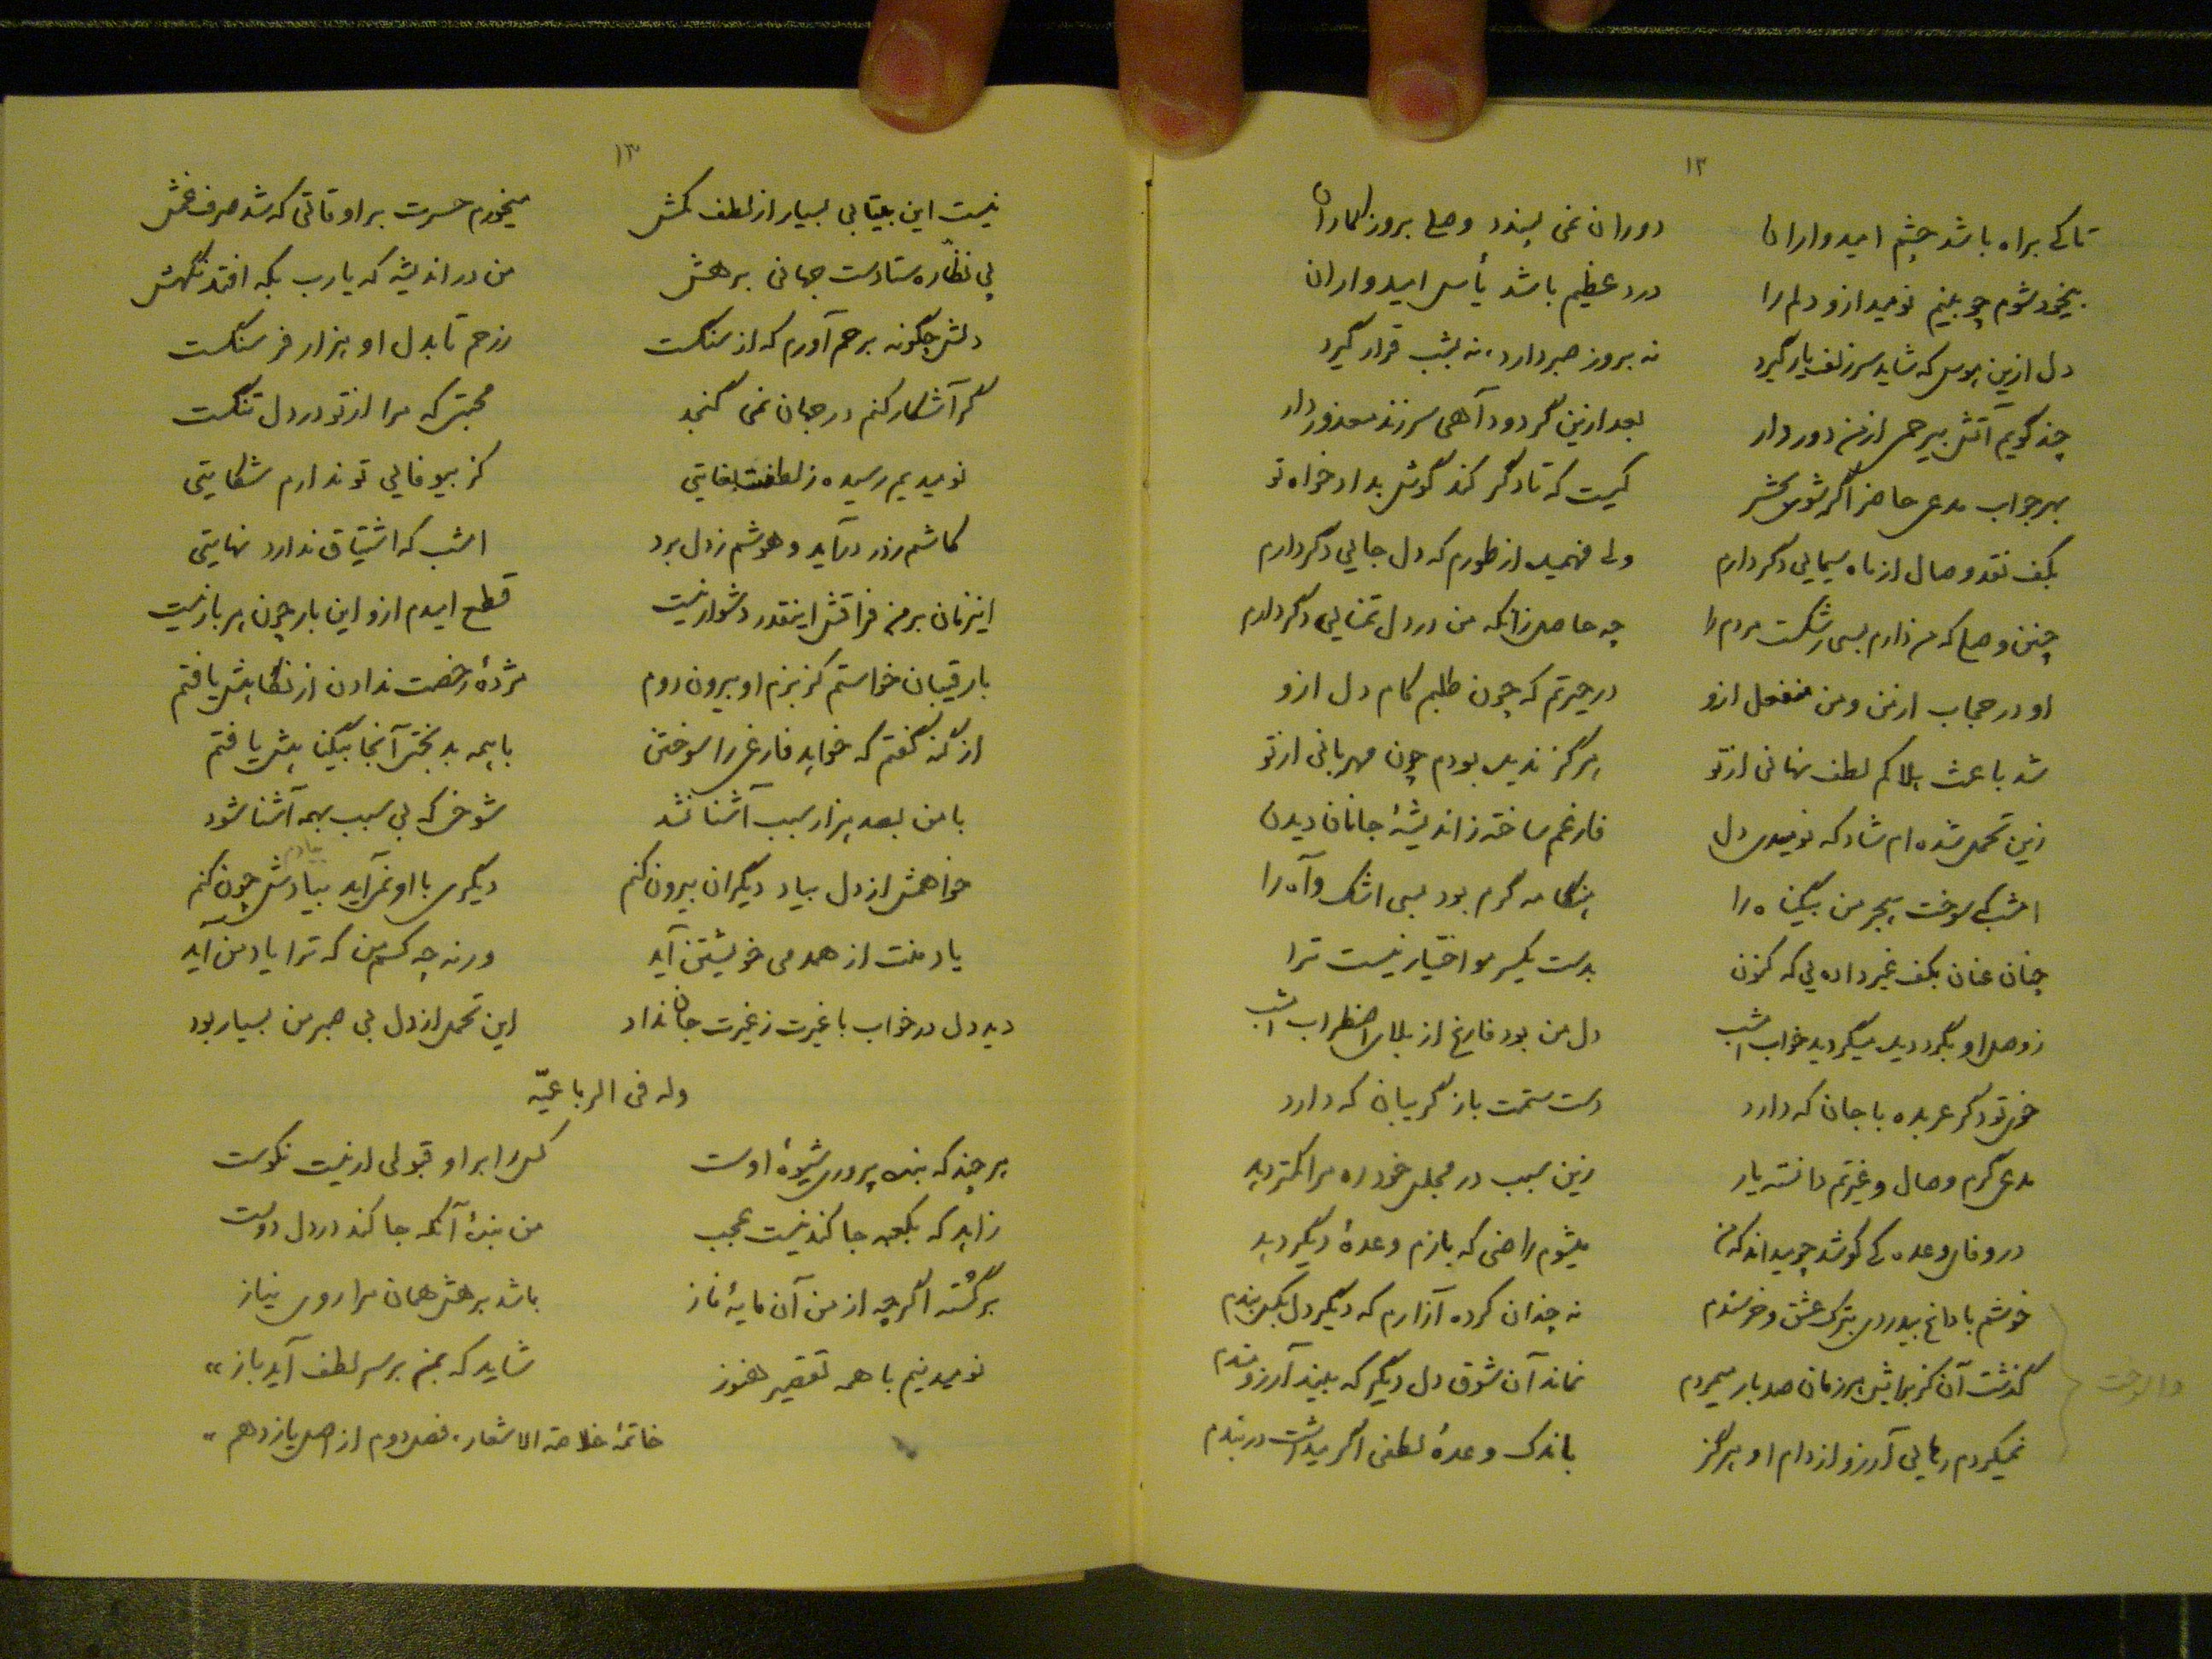 ۱۲
تا کی براه باشد چشم امیدواران    دوران نمی پسندد وصلی بروزگاران
بیخود شوم چو بینم نومید ازو دلم را    درد عظیم باشد یأس امیدواران
دل ازین هوس که شاید سر زلف یار گیرد    نه بروز صبر دارد، نه بشب قرار گیرد
چند گویم آتش بیرحمی از من دور دار    بعد ازین گر دود آهی سر زند معذور دار
بهر جواب مدعی حاضر اگر شوی بحشر    کیست که تا دگر کند گوش بدادخواه تو
بکف نقد وصال از ماه سیمایی دگر دارم    ولی فهمیده از طورم که دل جایی دگر دارم
چنین وصلی که من دارم بسی رشکست مردم را    چه حاصل زانکه من در دل تمنایی دگر دارم
او در حجاب از من و من منفعل ازو    در حیرتم که چون طلبم کام دل ازو
شد باعث هلاکم لطف نهانی از تو    هرگز ندیده بودم چون مهربانی از تو
زین تحمل شده ام شاد که نومیدی دل    فارغم ساخته ز اندیشهٔ جانان دیدن
امشب که سوخت هجر من بیگناه را    هنگامه گرم بود بسی اشک و آه را
چنان عنان بکف غیر داده یی که کنون    بدست یکسر مو اختیار نیست ترا
ز وصل او بگرد دیده میگردید خواب امشب    دل من بود فارغ از بلای اضطراب امشب
خوی تو دگر عربده با جان که دارد    دست ستمت باز گریبان که دارد
مدعی گرم وصال و غیرتم دانسته یار    زین سبب در مجلس خود ره مرا کمتر دهد
در وفای وعده کی کوشد چو میداند که من    میشوم راضی که بازم وعدهٔ دیگر دهد
خوشم با داغ بیدردی بترک عشق و خرسندم    نه چندان کرده آزارم که دیگر دل بکس بندم
گذشت آن کز برایش هر زمان صد بار میمردم    نماند آن شوق دل دیگر که بیند آرزومندم
نمیکردم رهایی آرزو از دام او هرگز    باندک وعدهٔ لطفی اگر میداشت در بندم
واسوخت
۱۳
نیست این بیتابی بسیار از لطف کمش    میخورم حسرت بر اوقاتی که شد صرف غمش
پی نظاره ستادست جهانی برهش    من در اندیشه که یارب بکه افتد نگهش
دلش چگونه برحم آورم که از سنگست    ز رحم تا بدل او هزار فرسنگست
گر آشکار کنم در جهان نمی گنجد    محبتی که مرا از تو در دل تنگست
نومیدیم رسیده ز لطفت بغایتی    کز بیوفایی تو ندارم شکایتی
کاشم ز در درآید و هوشم ز دل برد    امشب که اشتیاق ندارد نهایتی
اینزمان بر من فراقش اینقدر دشوار نیست    قطع امیدم ازو این بار چون هر بار نیست
با رقیبان خواستم کز بزم او بیرون روم    مژدهٔ رخصت ندادن از نگاهش یافتم
از گنه گفتم که خواهد فارغی را سوختن    با همه بدبختی آنجا بیگناهش یافتم
با من بعد هزار سبب آشنا نشد    شوخی که بی سبب بهمه آشنا شود
خواهمش از دل بیاد دیگران بیرون کنم    دیگری با او نمی آید بیادش چون کنم
یاد منت از همدمی خویشتن آید    ورنه چه کسم من که ترا یاد من آید
دید دل در خواب با غیرت ز غیرت جان نداد    این تحمل از دل بی صبر من بسیار بود
وله فی الرباعیّه
هر چند که بنده پروری شیوهٔ اوست    کس را بر او قبولی ار نیست نکوست
زاهد که بکعبه جا کند نیست عجب    من بندهٔ آنکه جا کند در دل دوست
برگشته اگرچه از من آن مایهٔ ناز    باشد برهش همان مرا روی نیاز
نومید نیم با همه تقصیر هنوز    شاید که بمن بر سر لطف آید باز»
خاتمهٔ خلاصة الاشعار، فصل دوم از اصل یازدهم»